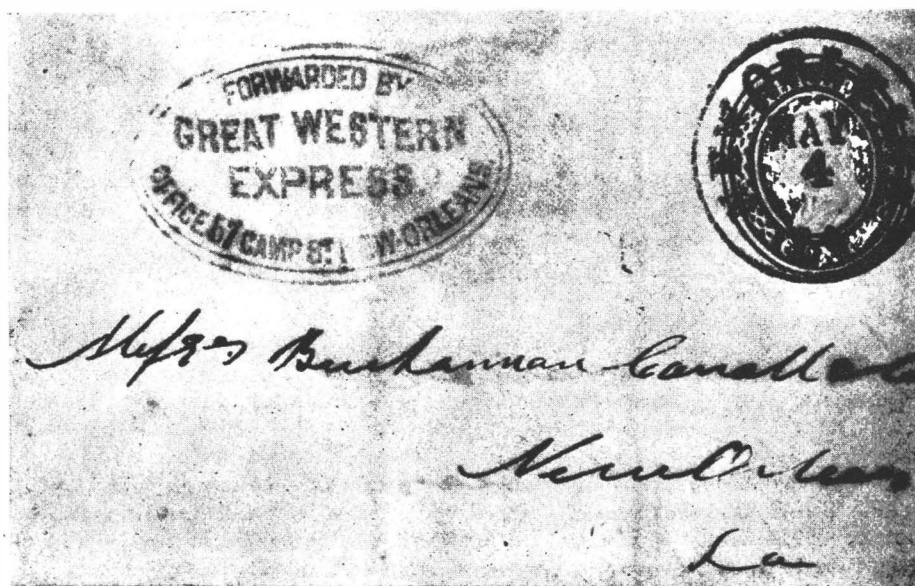 FORWARDED BY
GREAT WESTERN
EXPRESS.
OFFICE 67 CAMP ST. NEW-ORLEANS
MAY
4
Messrs Buchannan Carroll & Co
New Orleans
La